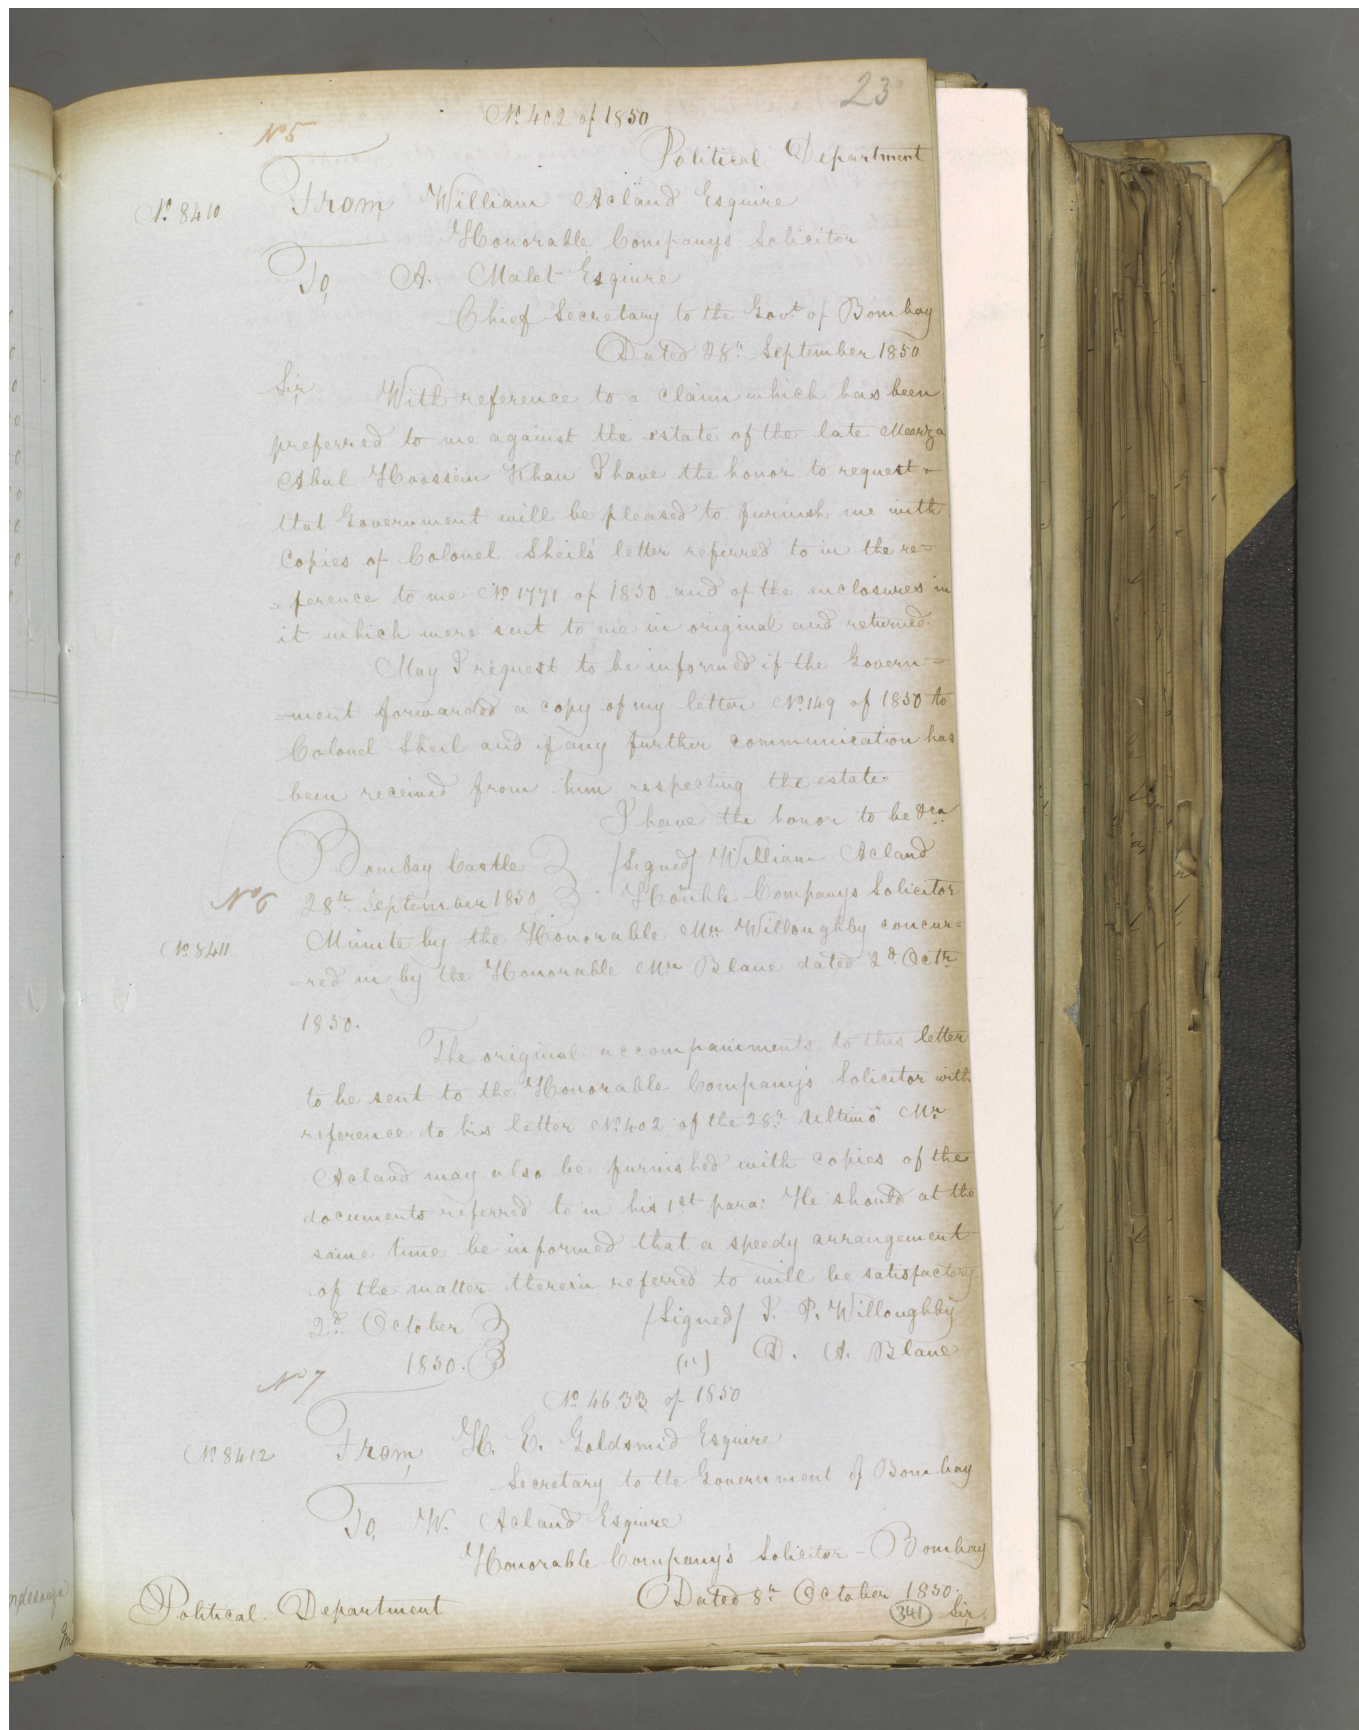 23
No. 402 of 1850
No 5
Political Department
No. 8410
From, William Acland Esquire
Honorable Companys Solicitor
To, A. Malet Esquire
Chief Secretary to the Govt. of Bombay
Dated 28th September 1850
Sir, With reference to a claim which has been
preferred to me against the estate of the late Meerza
Abul Hoossein Khan I have the honor to request
that Government will be pleased to furnish me with
Copies of Colonel Sheil's letter referred to in the re=
=ference to me No. 1771 of 1850 and of the enclosures in
it which were sent to me in original and returned.
May I request to be informed if the Govern=
=ment forwarded a copy of my letter No. 149 of 1850 to
Colonel Sheil and if any further communication has
been received from him respecting the estate.
I have the honor to be &ca
Bombay Castle } /Signed/ William Acland
No 6
28th September 1850 } Honble Companys Solicitor
No. 8411
Minute by the Honorable Mr. Willoughby concur=
=red in by the Honorable Mr Blane dated 2d. Octr.
1850.
The original accompaniments to this letter
to be sent to the Honorable Company's Solicitor with
reference to his letter No. 402 of the 28th Ultimo Mr.
Acland may also be furnished with copies of the
documents referred to in his 1st para: He should at the
same time be informed that a speedy arrangement
of the matter therein referred to will be satisfactory.
2d. October } /Signed/ J. P. Willoughby
1850. } (") D. A. Blane
No 7
No. 4633 of 1850
No. 8412
From, H. E. Goldsmid Esquire
Secretary to the Government of Bombay
To, W. Acland Esquire
Honorable Company's Solicitor - Bombay
Political Department Dated 8th October 1850.
341 Sir,